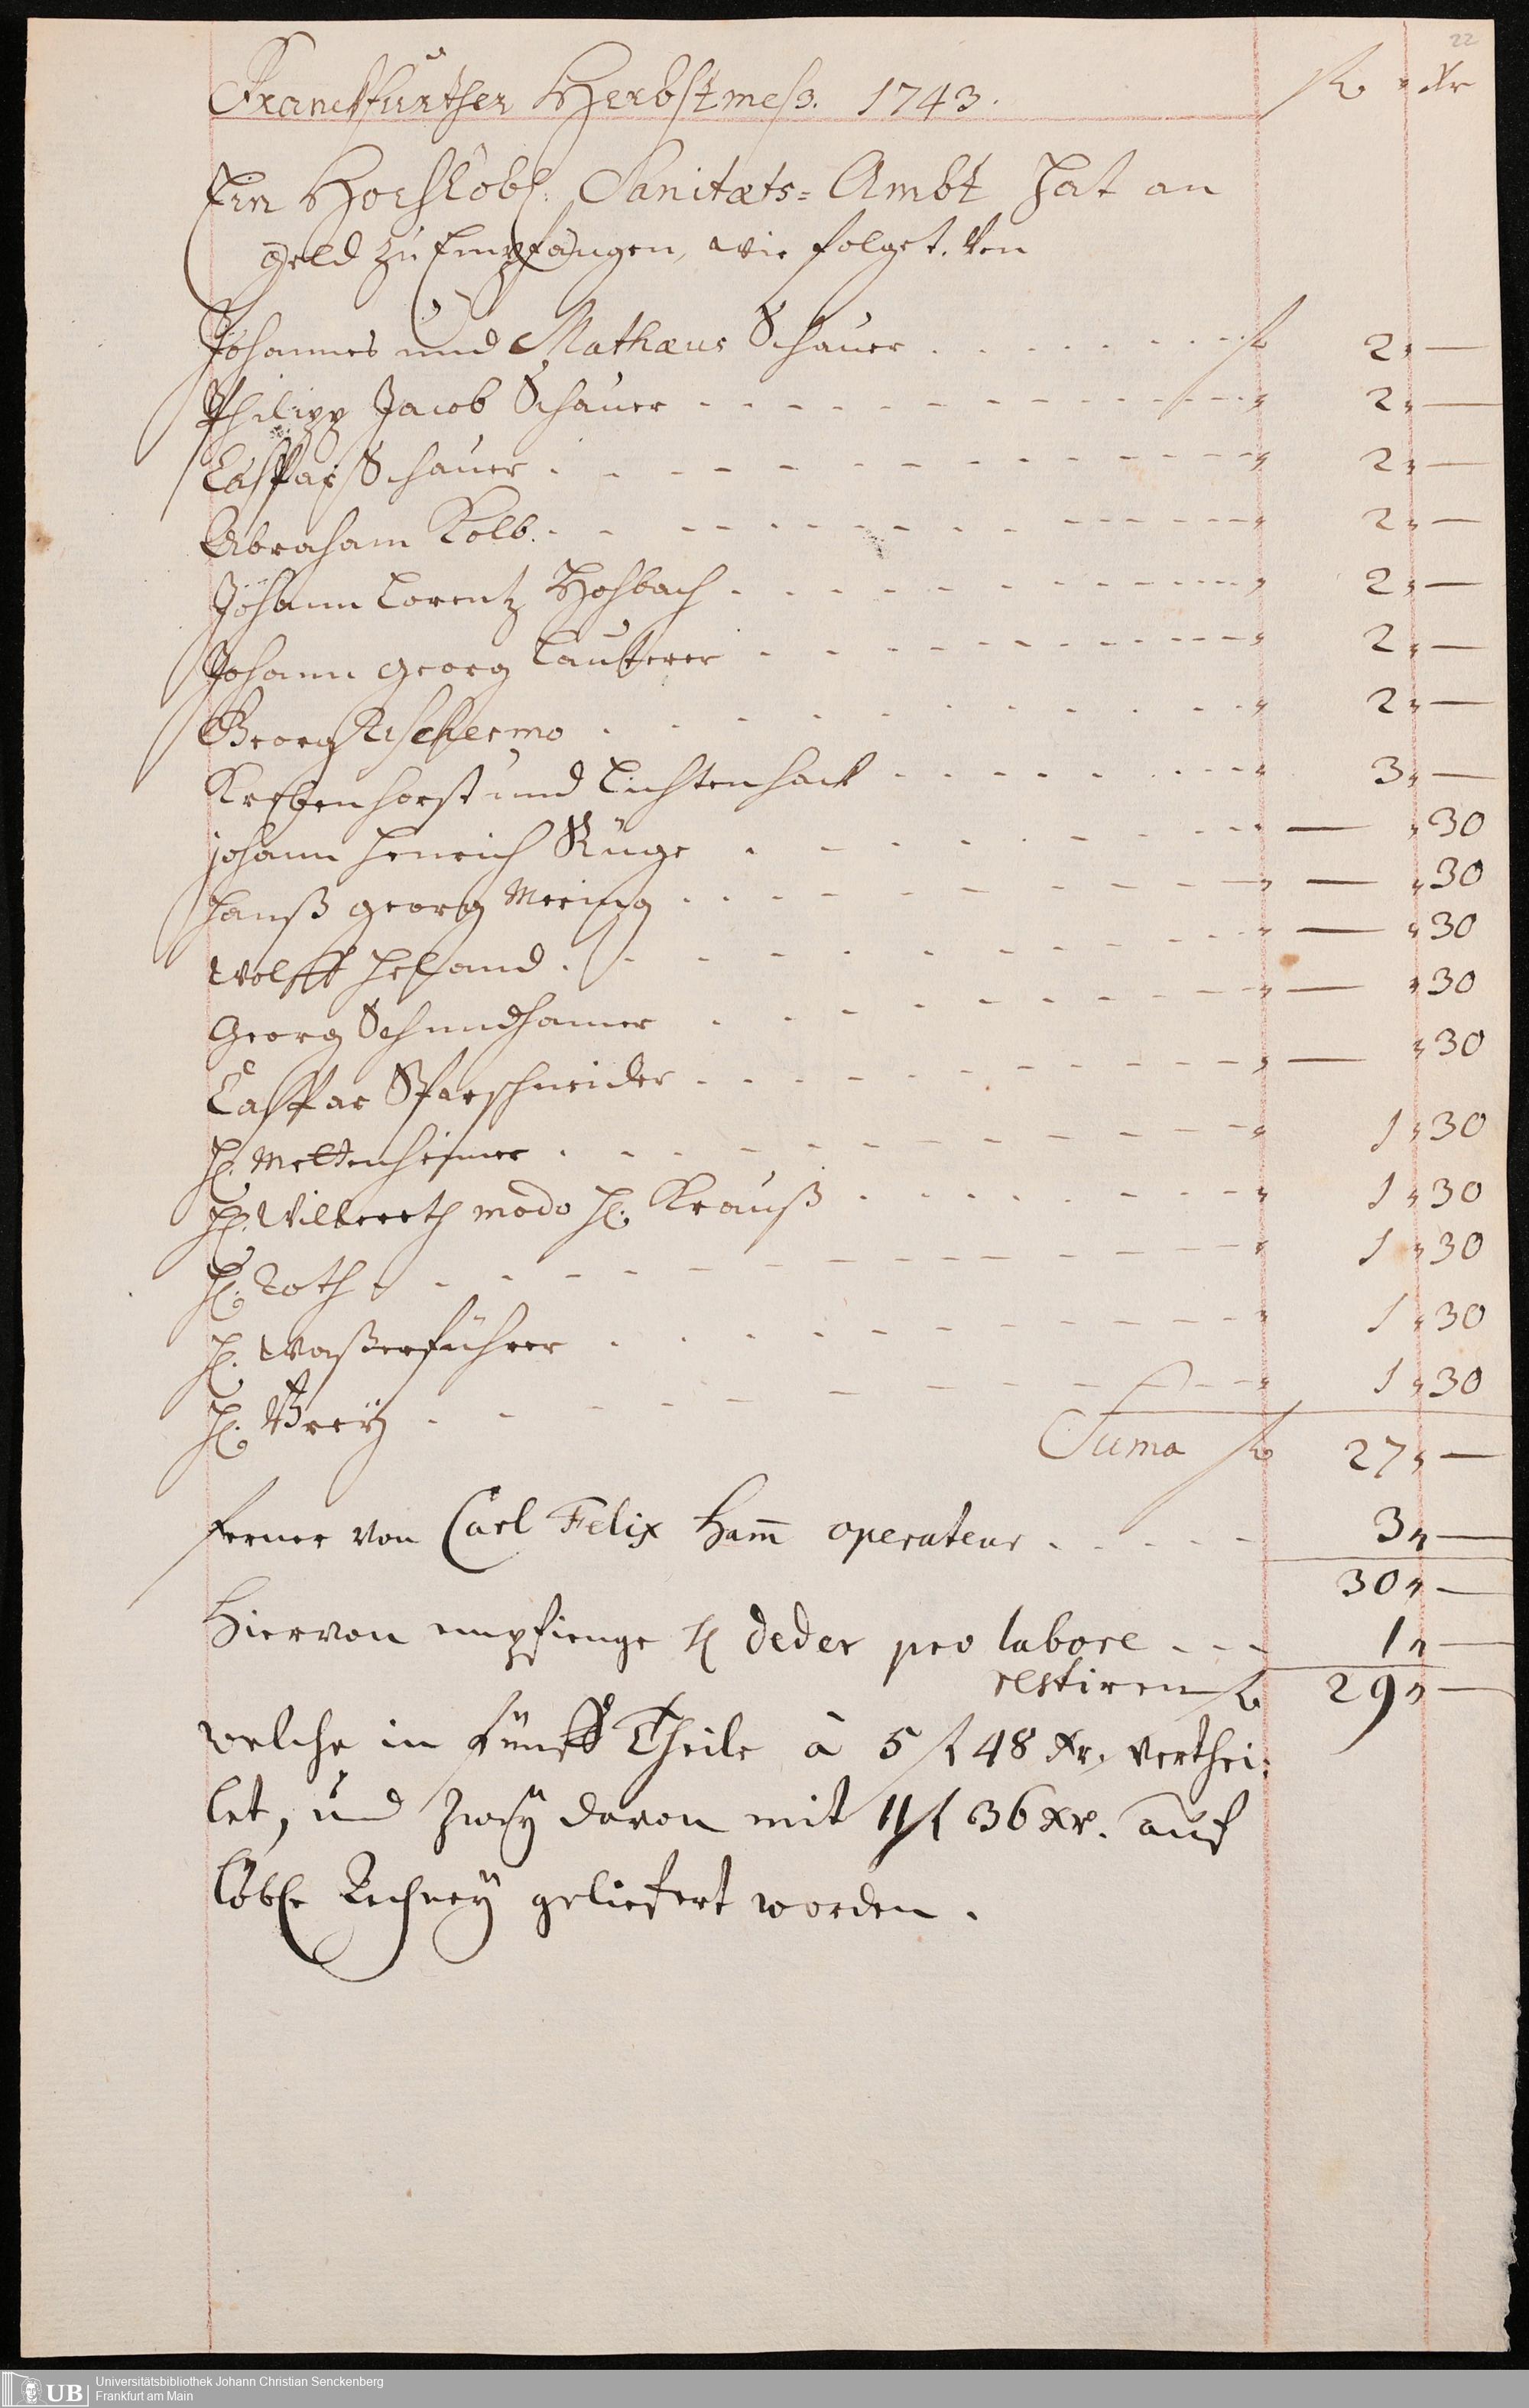 22
Franckfurther Herbstmeß. 1743. fl. " Xr
Ein Hochlöbl. Sanitæts=Ambt hat an
geld zu Empfangen, wie folget. Von
Johannes und Mathæus Schauer . . . . . . . . fl 2 " —
Philipp Jacob Schauer - - - - - - - - " 2 " —
Caspar Schauer . - - - - - - - - " 2 " —
Abraham Kolb. - - - - - - - - " 2 " —
Johann Lorentz Hohbach . - - - - - - - " 2 " —
Johann Georg Lauterer - - - - - - - - " 2 " —
Georg . - - - - - - - " 2 " —
Krebenhorst und Lichtenhack - - - - - - - " 3 " —
johann Henrich Rüge . - - - - - - " — " 30
Hanß Georg Mering . . . - - - - - " — " 30
Wolff Heland . - - - - - - - " — " 30
Georg Schmidhamer . - - - - - - " — " 30
Caspar Sparschneider . - - - - - - " — " 30
H. Mettenheimer . - - - - - - - " 1 " 30
H. Wilbereth modo H. Krauß . . . . - - - " 1 " 30
H. Roth - - - - - - - - " 1 " 30
H. Waßerführer . . - - - - - - " 1 " 30
H. Breÿ - - - - - - - - " 1 " 30
Suma fl. 27 " —
ferner von Carl Felix Ham̄ operateur . . . - - 3 " —
30 " —
Hiervon empfienge H deder pro labore - - - 1 " —
restiren fl. 29 " —
welche in fünff Theile à 5 fl 48 Xr. verthei=
let, und zweÿ davon mit 11 fl 36 Xr. auf
löbl. Rechneÿ geliefert worden.
UB
Universitätsbibliothek Johann Christian Senckenberg
Frankfurt am Main